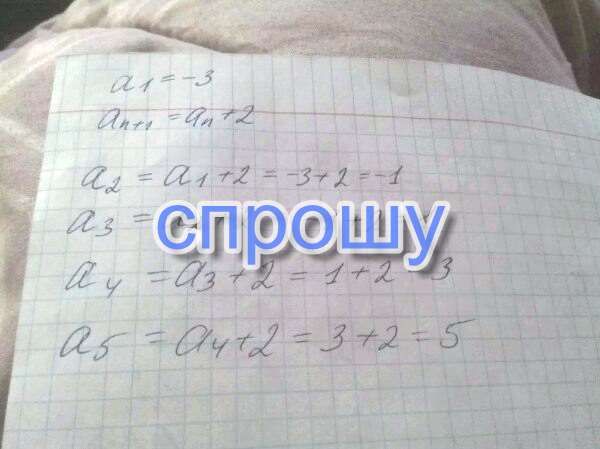 a₁ = -3
aₙ₊₁ = aₙ + 2
a₂ = a₁ + 2 = -3 + 2 = -1
a₃ =
спрошу
a₄ = a₃ + 2 = 1 + 2 3
a₅ = a₄ + 2 = 3 + 2 = 5